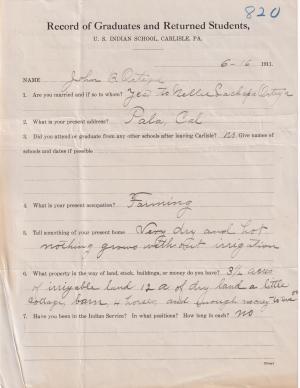 820
Record of Graduates and Returned Students,
U. S. INDIAN SCHOOL, CARLISLE, PA.
6-16 1911.
NAME John B Ortega
1. Are you married and if so to whom? Yes to Nellie
2. What is your present address? Pala, Cal
3. Did you attend or graduate from any other schools after leaving Carlisle? no Give names of
schools and dates if possible
4. What is your present occupation? Farming
5. Tell something of your present home Very dry and hot
nothing grows without irrigation
6. What property in the way of land, stock, buildings, or money do you have? 3½ acres
of irrigable land 12 a of dry land a little
cottage, barn, 4 horses and enough money to live on
7. Have you been in the Indian Service? In what positions? How long in each? no
(Over)